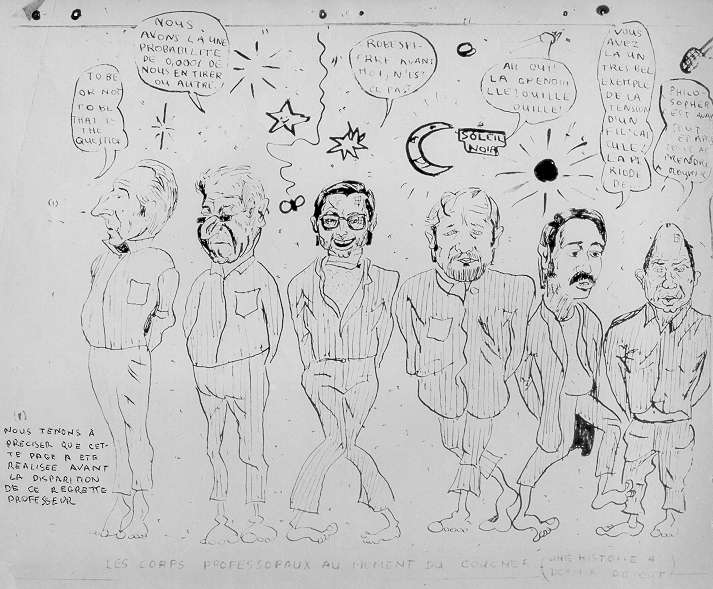 TO BE
OR NOT
TO BE
THAT IS
THE
QUESTION
NOUS
AVONS LÀ UNE
PROBABILITÉ
DE 0,0001 DE
NOUS EN TIRER
OU AUTRE!
ROBESPI-
ERRE AVANT
MOI, N'EST
CE PAS?
AH OUI!
LA GRENOUI
LLE! OUILLE
OUILLE!
SOLEIL
NOIR
VOUS
AVEZ
LÀ UN
TRÈS BEL
EXEMPLE
DE LA
TENSION
D'UN
FIL! CAL
CULEZ
LA PÉ
RIODE
DE
PHILO
SOPHER
EST AVANT
TOUT
PRENDRE
(1)
(1)
NOUS TENONS À
PRÉCISER QUE CET-
TE PAGE A ÉTÉ
RÉALISÉE AVANT
LA DISPARITION
DE CE REGRETTÉ
PROFESSEUR
LES CORPS PROFESSORAUX AU MOMENT DU COUCHER (UNE HISTOIRE À
DORMIR DEBOUT)